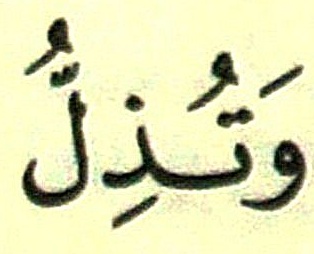 وَتُذِلُّ